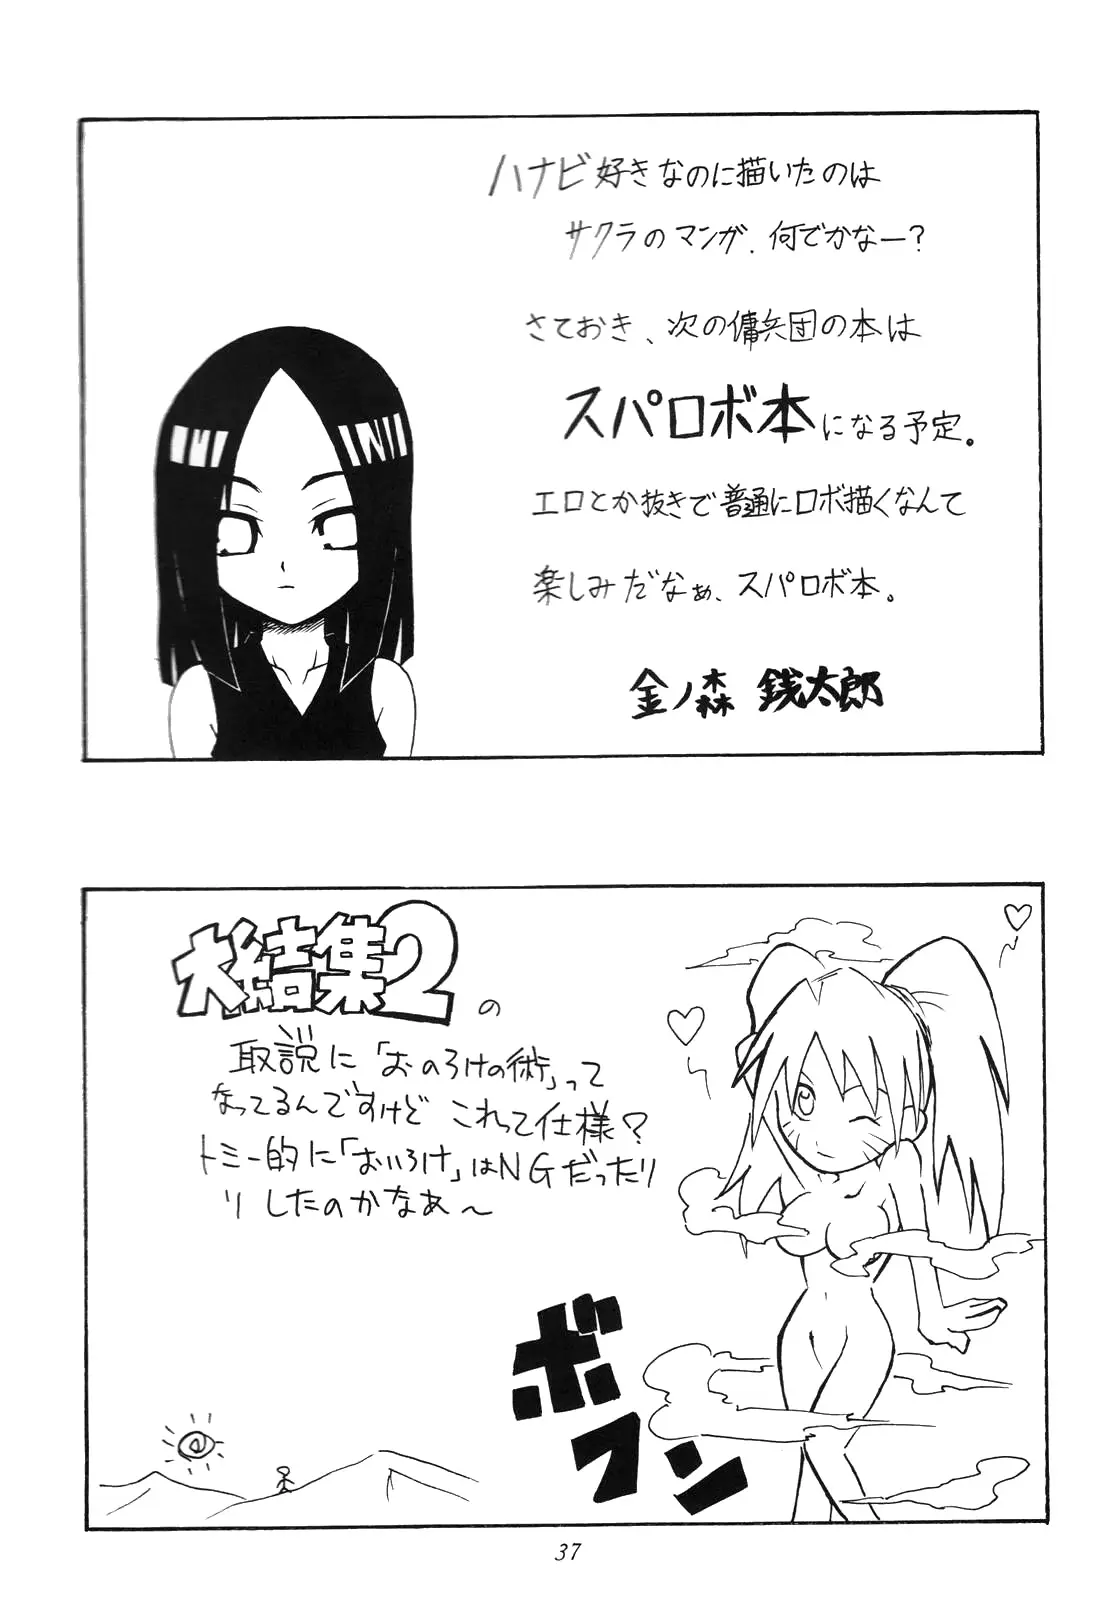 ハナビ好きなのに描いたのは
サクラのマンガ、何でかなー?
さておき、次の傭兵団の本は
スパロボ本になる予定。
エロとか抜きで普通にロボ描くなんて
楽しみだなぁ、スパロボ本。
金ノ森 銭太郎
大結集2の
取説に「おのろけの術」って
なってるんですけど これって仕様?
トミー的に「おいろけ」はNGだったり
リしたのかなあ〜
ボフン
37